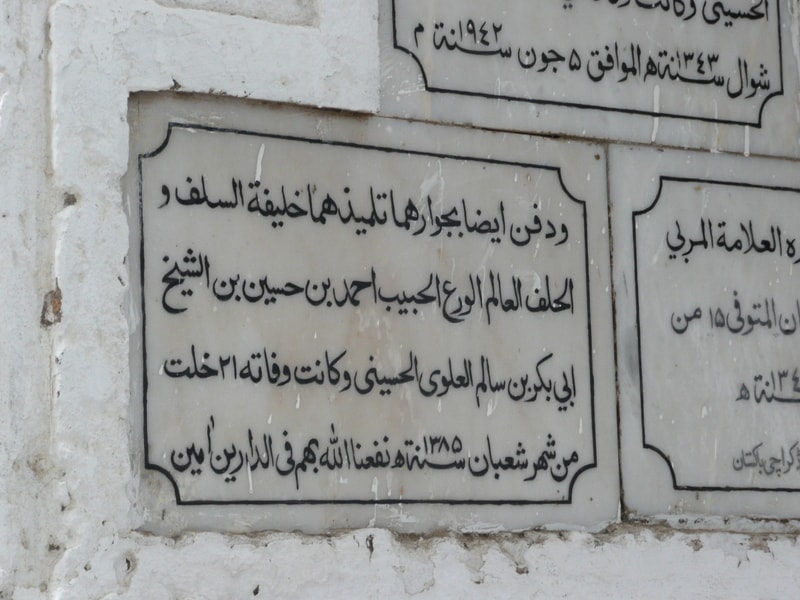 الحسيني وكانت
شوال سنة ١٣٤٣ه الموافق ٥ جون سنة ١٩٤٢ م
ودفن ايضا بجوارهما تلميذهما خليفة السلف و
الخلف العالم الورع الحبيب احمد بن حسين بن الشيخ
ابي بكر بن سالم العلوي الحسيني وكانت وفاته ٢١ خلت
من شهر شعبان سنة ١٣٨٥ه نفعنا الله بهم في الدارين امين
ره العلامة المربي
ان المتوفى ١٥ من
سنة ه
كراچي پاکستان